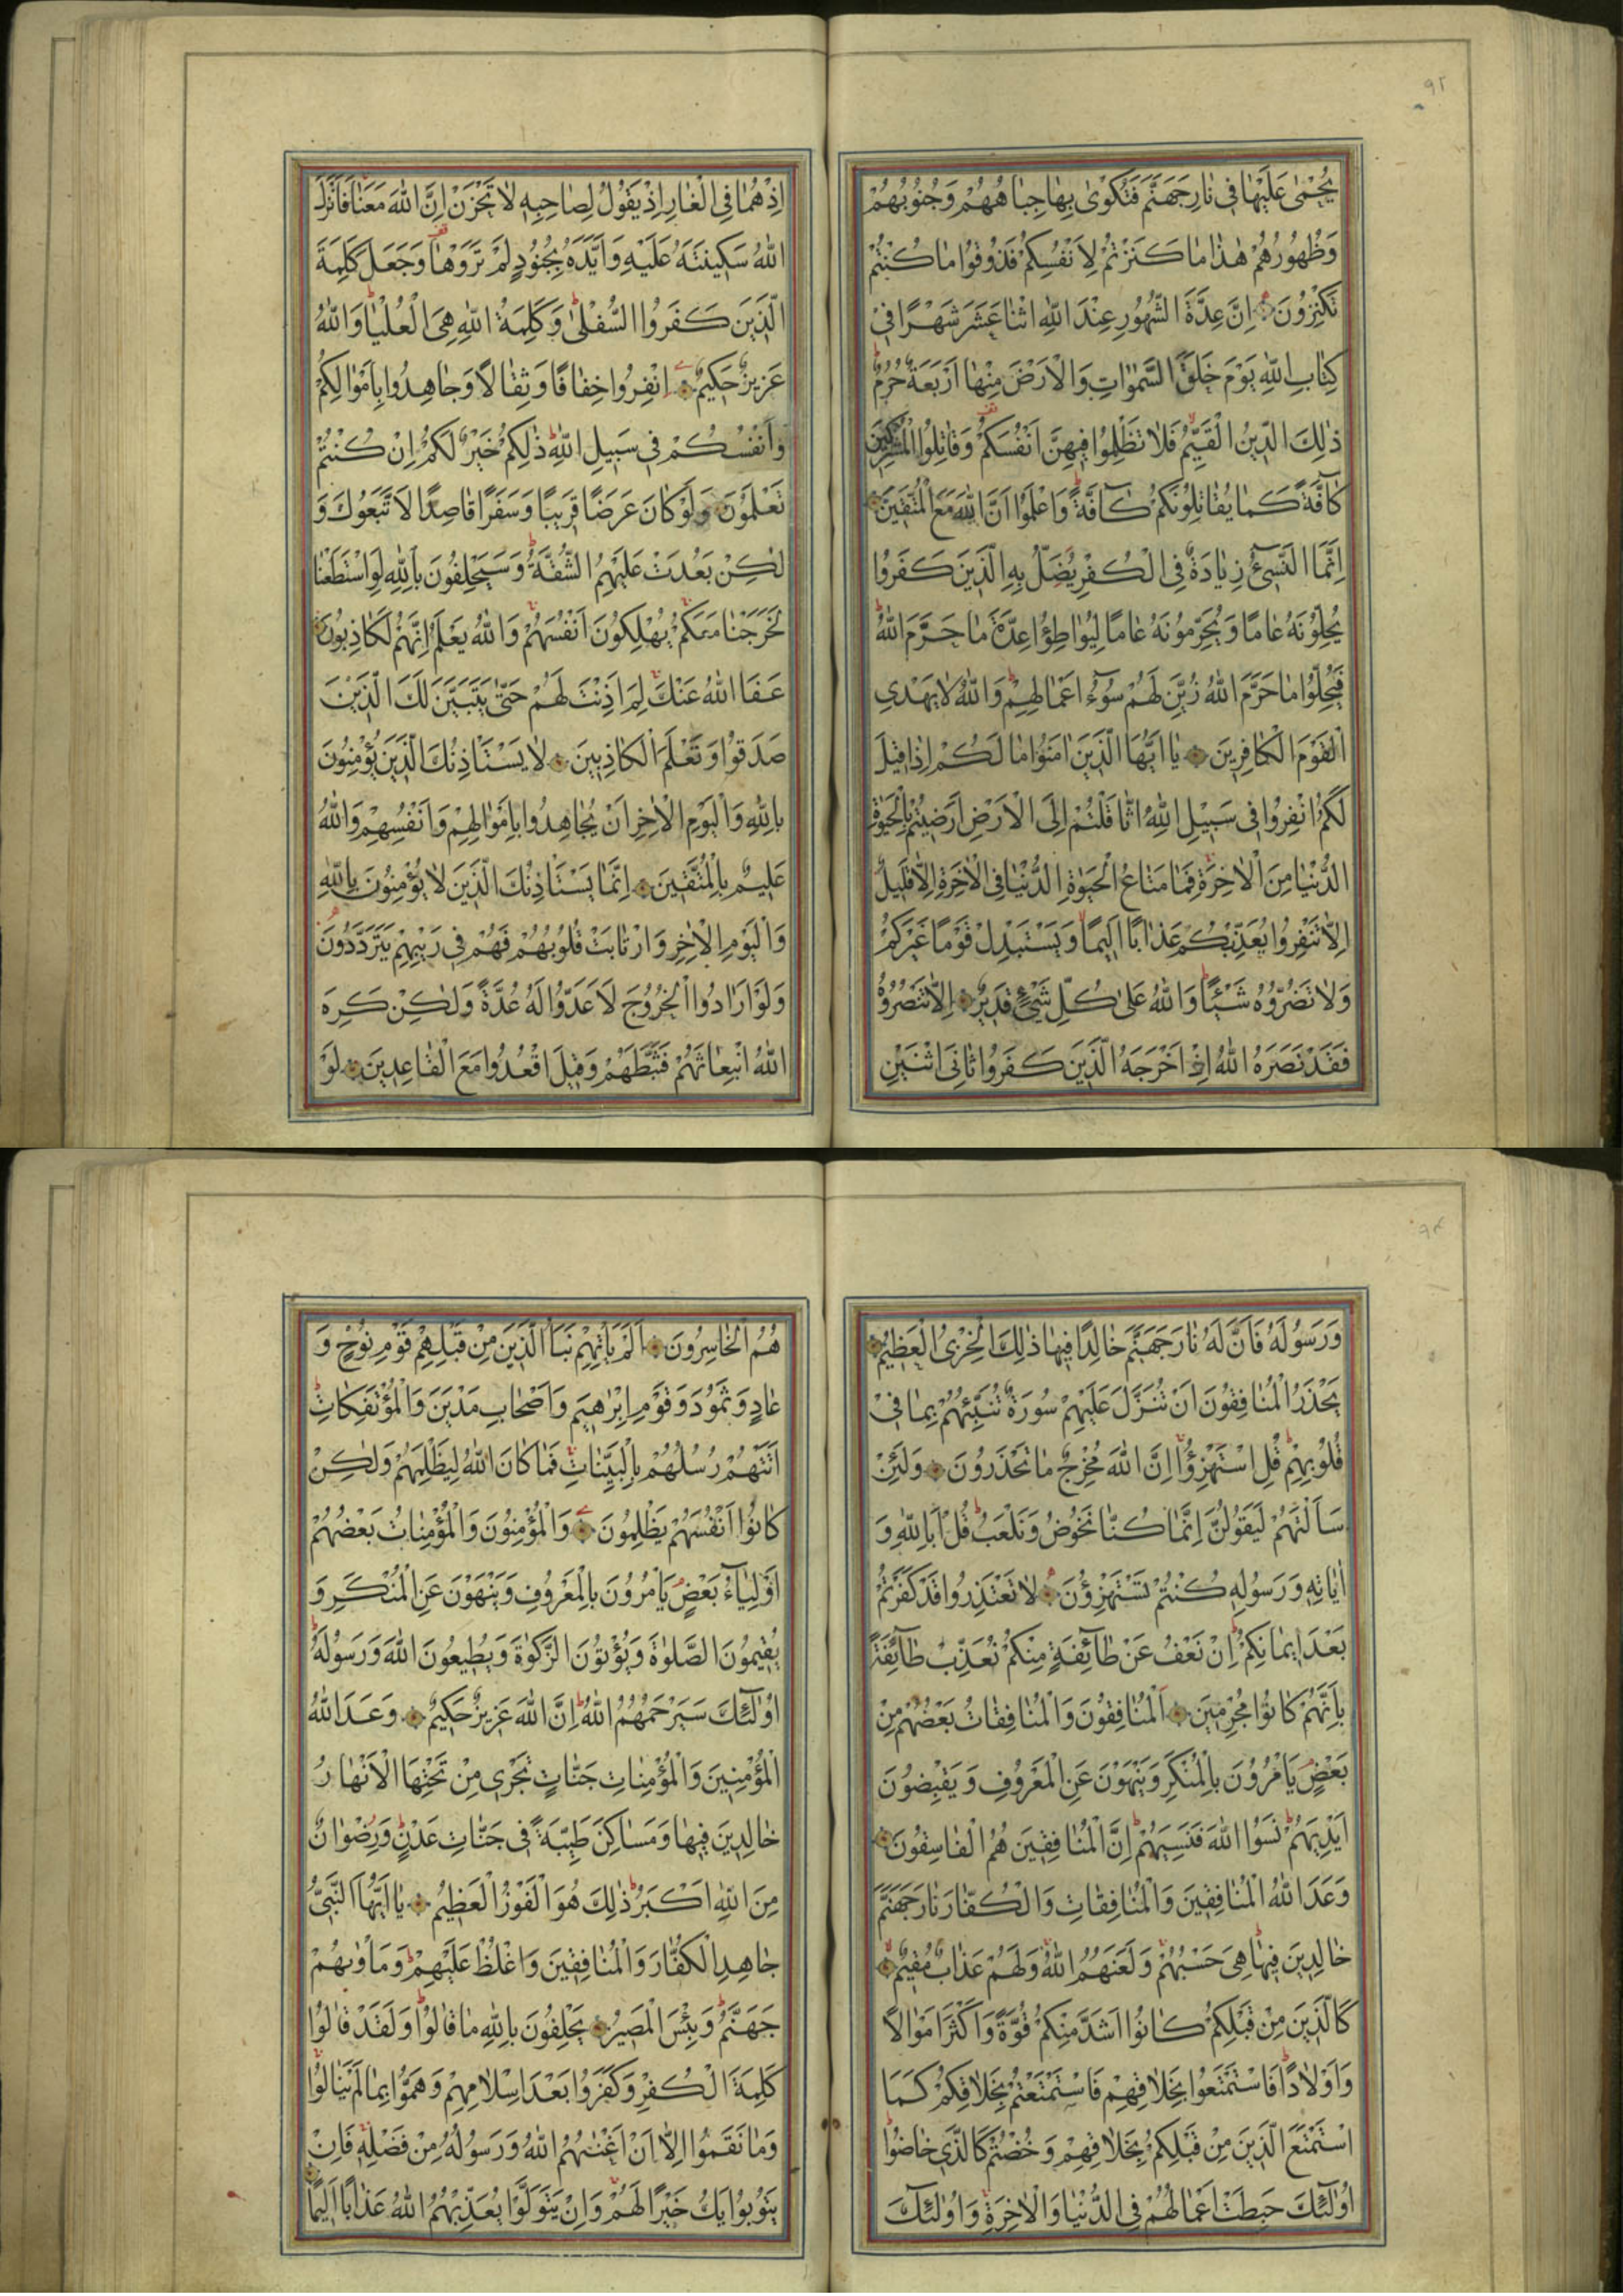 ٩٢
يُحْمٰى عَلَيْهٰا فِى نٰارِ جَهَنَّمَ فَتُكْوٰى بِهٰا جِبٰاهُهُمْ وَجُنُوبُهُمْ
وَظُهُورُهُمْ هٰذٰا مٰا كَنَزْتُمْ لِاَنْفُسِكُمْ فَذُوقُوا مٰا كُنْتُمْ
تَكْنِزُونَ اِنَّ عِدَّةَ الشُّهُورِ عِنْدَ اللّٰهِ اثْنٰا عَشَرَ شَهْرًا فِى
كِتٰابِ اللّٰهِ يَوْمَ خَلَقَ السَّمٰوٰاتِ وَالْاَرْضَ مِنْهٰا اَرْبَعَةٌ حُرُمٌ
ذٰلِكَ الدِّينُ الْقَيِّمُ فَلٰا تَظْلِمُوا فِيهِنَّ اَنْفُسَكُمْ وَقٰاتِلُوا الْمُشْرِكِينَ
كٰآفَّةً كَمٰا يُقٰاتِلُونَكُمْ كٰآفَّةً وَاعْلَمُوا اَنَّ اللّٰهَ مَعَ الْمُتَّقِينَ
اِنَّمَا النَّسِىٓءُ زِيٰادَةٌ فِى الْكُفْرِ يُضَلُّ بِهِ الَّذِينَ كَفَرُوا
يُحِلُّونَهُ عٰامًا وَيُحَرِّمُونَهُ عٰامًا لِيُوٰاطِؤُا عِدَّةَ مٰا حَرَّمَ اللّٰهُ
فَيُحِلُّوا مٰا حَرَّمَ اللّٰهُ زُيِّنَ لَهُمْ سُوٓءُ اَعْمٰالِهِمْ وَاللّٰهُ لٰا يَهْدِى
الْقَوْمَ الْكٰافِرِينَ يٰا اَيُّهَا الَّذِينَ اٰمَنُوا مٰا لَكُمْ اِذٰا قِيلَ
لَكُمُ انْفِرُوا فِى سَبِيلِ اللّٰهِ اثّٰاقَلْتُمْ اِلَى الْاَرْضِ اَرَضِيتُمْ بِالْحَيٰوةِ
الدُّنْيٰا مِنَ الْاٰخِرَةِ فَمٰا مَتٰاعُ الْحَيٰوةِ الدُّنْيٰا فِى الْاٰخِرَةِ اِلّٰا قَلِيلٌ
اِلّٰا تَنْفِرُوا يُعَذِّبْكُمْ عَذٰابًا اَلِيمًا وَيَسْتَبْدِلْ قَوْمًا غَيْرَكُمْ
وَلٰا تَضُرُّوهُ شَيْئًا وَاللّٰهُ عَلٰى كُلِّ شَىْءٍ قَدِيرٌ اِلّٰا تَنْصُرُوهُ
فَقَدْ نَصَرَهُ اللّٰهُ اِذْ اَخْرَجَهُ الَّذِينَ كَفَرُوا ثٰانِىَ اثْنَيْنِ
اِذْ هُمٰا فِى الْغٰارِ اِذْ يَقُولُ لِصٰاحِبِهِ لٰا تَحْزَنْ اِنَّ اللّٰهَ مَعَنٰا فَاَنْزَلَ
اللّٰهُ سَكِينَتَهُ عَلَيْهِ وَاَيَّدَهُ بِجُنُودٍ لَمْ تَرَوْهٰا وَجَعَلَ كَلِمَةَ
الَّذِينَ كَفَرُوا السُّفْلٰى وَكَلِمَةُ اللّٰهِ هِىَ الْعُلْيٰا وَاللّٰهُ
عَزِيزٌ حَكِيمٌ اِنْفِرُوا خِفٰافًا وَثِقٰالًا وَجٰاهِدُوا بِاَمْوٰالِكُمْ
وَاَنْفُسِكُمْ فِى سَبِيلِ اللّٰهِ ذٰلِكُمْ خَيْرٌ لَكُمْ اِنْ كُنْتُمْ
تَعْلَمُونَ وَلَوْ كٰانَ عَرَضًا قَرِيبًا وَسَفَرًا قٰاصِدًا لَاتَّبَعُوكَ وَ
لٰكِنْ بَعُدَتْ عَلَيْهِمُ الشُّقَّةُ وَسَيَحْلِفُونَ بِاللّٰهِ لَوِ اسْتَطَعْنٰا
لَخَرَجْنٰا مَعَكُمْ يُهْلِكُونَ اَنْفُسَهُمْ وَاللّٰهُ يَعْلَمُ اِنَّهُمْ لَكٰاذِبُونَ
عَفَا اللّٰهُ عَنْكَ لِمَ اَذِنْتَ لَهُمْ حَتّٰى يَتَبَيَّنَ لَكَ الَّذِينَ
صَدَقُوا وَتَعْلَمَ الْكٰاذِبِينَ لٰا يَسْتَاْذِنُكَ الَّذِينَ يُؤْمِنُونَ
بِاللّٰهِ وَالْيَوْمِ الْاٰخِرِ اَنْ يُجٰاهِدُوا بِاَمْوٰالِهِمْ وَاَنْفُسِهِمْ وَاللّٰهُ
عَلِيمٌ بِالْمُتَّقِينَ اِنَّمٰا يَسْتَاْذِنُكَ الَّذِينَ لٰا يُؤْمِنُونَ بِاللّٰهِ
وَالْيَوْمِ الْاٰخِرِ وَارْتٰابَتْ قُلُوبُهُمْ فَهُمْ فِى رَيْبِهِمْ يَتَرَدَّدُونَ
وَلَوْ اَرٰادُوا الْخُرُوجَ لَاَعَدُّوا لَهُ عُدَّةً وَلٰكِنْ كَرِهَ
اللّٰهُ انْبِعٰاثَهُمْ فَثَبَّطَهُمْ وَقِيلَ اقْعُدُوا مَعَ الْقٰاعِدِينَ لَوْ
وَرَسُولَهُ فَاَنَّ لَهُ نٰارَ جَهَنَّمَ خٰالِدًا فِيهٰا ذٰلِكَ الْخِزْىُ الْعَظِيمُ
يَحْذَرُ الْمُنٰافِقُونَ اَنْ تُنَزَّلَ عَلَيْهِمْ سُورَةٌ تُنَبِّئُهُمْ بِمٰا فِى
قُلُوبِهِمْ قُلِ اسْتَهْزِؤُا اِنَّ اللّٰهَ مُخْرِجٌ مٰا تَحْذَرُونَ وَلَئِنْ
سَاَلْتَهُمْ لَيَقُولُنَّ اِنَّمٰا كُنّٰا نَخُوضُ وَنَلْعَبُ قُلْ اَبِاللّٰهِ وَ
اٰيٰاتِهِ وَرَسُولِهِ كُنْتُمْ تَسْتَهْزِؤُنَ لٰا تَعْتَذِرُوا قَدْ كَفَرْتُمْ
بَعْدَ اِيمٰانِكُمْ اِنْ نَعْفُ عَنْ طٰآئِفَةٍ مِنْكُمْ نُعَذِّبْ طٰآئِفَةً
بِاَنَّهُمْ كٰانُوا مُجْرِمِينَ اَلْمُنٰافِقُونَ وَالْمُنٰافِقٰاتُ بَعْضُهُمْ مِنْ
بَعْضٍ يَاْمُرُونَ بِالْمُنْكَرِ وَيَنْهَوْنَ عَنِ الْمَعْرُوفِ وَيَقْبِضُونَ
اَيْدِيَهُمْ نَسُوا اللّٰهَ فَنَسِيَهُمْ اِنَّ الْمُنٰافِقِينَ هُمُ الْفٰاسِقُونَ
وَعَدَ اللّٰهُ الْمُنٰافِقِينَ وَالْمُنٰافِقٰاتِ وَالْكُفّٰارَ نٰارَ جَهَنَّمَ
خٰالِدِينَ فِيهٰا هِىَ حَسْبُهُمْ وَلَعَنَهُمُ اللّٰهُ وَلَهُمْ عَذٰابٌ مُقِيمٌ
كَالَّذِينَ مِنْ قَبْلِكُمْ كٰانُوا اَشَدَّ مِنْكُمْ قُوَّةً وَاَكْثَرَ اَمْوٰالًا
وَاَوْلٰادًا فَاسْتَمْتَعُوا بِخَلٰاقِهِمْ فَاسْتَمْتَعْتُمْ بِخَلٰاقِكُمْ كَمَا
اسْتَمْتَعَ الَّذِينَ مِنْ قَبْلِكُمْ بِخَلٰاقِهِمْ وَخُضْتُمْ كَالَّذِى خٰاضُوا
اُولٰٓئِكَ حَبِطَتْ اَعْمٰالُهُمْ فِى الدُّنْيٰا وَالْاٰخِرَةِ وَاُولٰٓئِكَ
هُمُ الْخٰاسِرُونَ اَلَمْ يَاْتِهِمْ نَبَاُ الَّذِينَ مِنْ قَبْلِهِمْ قَوْمِ نُوحٍ وَ
عٰادٍ وَثَمُودَ وَقَوْمِ اِبْرٰهِيمَ وَاَصْحٰابِ مَدْيَنَ وَالْمُؤْتَفِكٰاتِ
اَتَتْهُمْ رُسُلُهُمْ بِالْبَيِّنٰاتِ فَمٰا كٰانَ اللّٰهُ لِيَظْلِمَهُمْ وَلٰكِنْ
كٰانُوا اَنْفُسَهُمْ يَظْلِمُونَ وَالْمُؤْمِنُونَ وَالْمُؤْمِنٰاتُ بَعْضُهُمْ
اَوْلِيٰٓاءُ بَعْضٍ يَاْمُرُونَ بِالْمَعْرُوفِ وَيَنْهَوْنَ عَنِ الْمُنْكَرِ وَ
يُقِيمُونَ الصَّلٰوةَ وَيُؤْتُونَ الزَّكٰوةَ وَيُطِيعُونَ اللّٰهَ وَرَسُولَهُ
اُولٰٓئِكَ سَيَرْحَمُهُمُ اللّٰهُ اِنَّ اللّٰهَ عَزِيزٌ حَكِيمٌ وَعَدَ اللّٰهُ
الْمُؤْمِنِينَ وَالْمُؤْمِنٰاتِ جَنّٰاتٍ تَجْرِى مِنْ تَحْتِهَا الْاَنْهٰارُ
خٰالِدِينَ فِيهٰا وَمَسٰاكِنَ طَيِّبَةً فِى جَنّٰاتِ عَدْنٍ وَرِضْوٰانٌ
مِنَ اللّٰهِ اَكْبَرُ ذٰلِكَ هُوَ الْفَوْزُ الْعَظِيمُ يٰا اَيُّهَا النَّبِىُّ
جٰاهِدِ الْكُفّٰارَ وَالْمُنٰافِقِينَ وَاغْلُظْ عَلَيْهِمْ وَمَاْوٰيهُمْ
جَهَنَّمُ وَبِئْسَ الْمَصِيرُ يَحْلِفُونَ بِاللّٰهِ مٰا قٰالُوا وَلَقَدْ قٰالُوا
كَلِمَةَ الْكُفْرِ وَكَفَرُوا بَعْدَ اِسْلٰامِهِمْ وَهَمُّوا بِمٰا لَمْ يَنٰالُوا
وَمٰا نَقَمُوا اِلّٰا اَنْ اَغْنٰيهُمُ اللّٰهُ وَرَسُولُهُ مِنْ فَضْلِهِ فَاِنْ
يَتُوبُوا يَكُ خَيْرًا لَهُمْ وَاِنْ يَتَوَلَّوْا يُعَذِّبْهُمُ اللّٰهُ عَذٰابًا اَلِيمًا